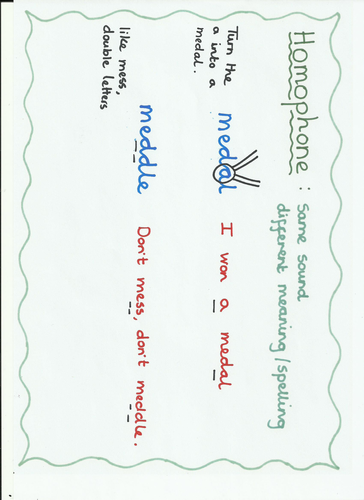 Homophone : Same sound
different meaning/spelling
Turn the
a into a
medal.
medal
I won a medal
like mess,
double letters
meddle
Don't mess, don't meddle.